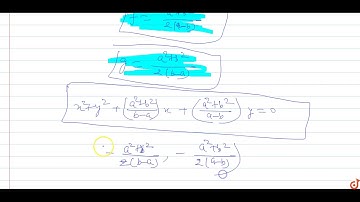 f = a²+b² / 2(a-b)
g = a²+b² / 2(b-a)
x²+y² + (a²+b² / b-a) x + (a²+b² / a-b) y = 0
- a²+b² / 2(b-a) , - a²+b² / 2(a-b)